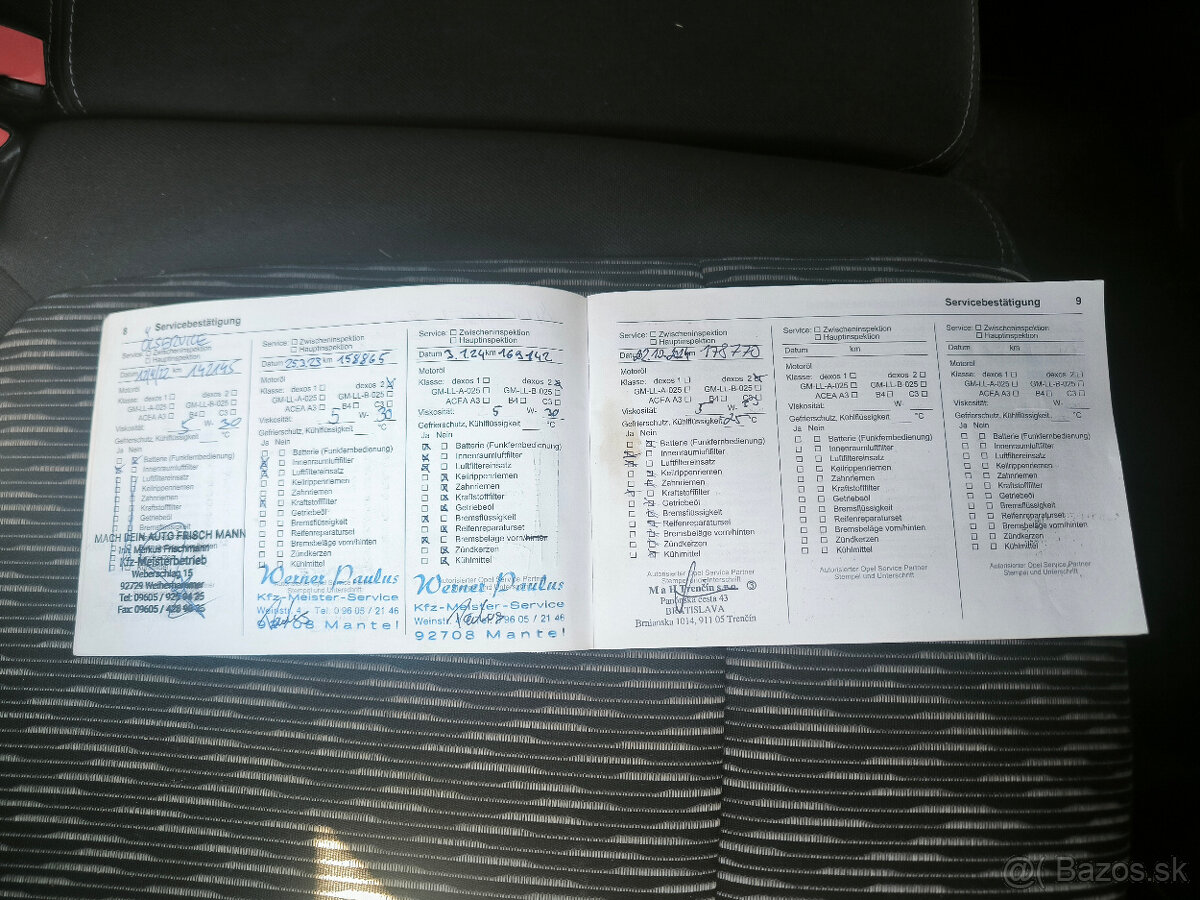 8 Servicebestätigung
ÖLSERVICE
Service: ☐ Zwischeninspektion
☐ Hauptinspektion
Datum km 142145
Motoröl
Klasse: dexos 1 ☐ dexos 2 ☒
GM-LL-A-025 ☐ GM-LL-B-025 ☐
ACEA A3 ☐ B4 ☐ C3 ☐
Viskosität: 5 W- 30
Gefrierschutz, Kühlflüssigkeit °C
Ja Nein
Batterie (Funkfernbedienung)
Innenraumluftfilter
Luftfiltereinsatz
Keilrippenriemen
Zahnriemen
Kraftstofffilter
Getriebeöl
Bremsflüssigkeit
MACH DEIN AUTO FRISCH MANN
Inh. Markus Frischmann
Kfz-Meisterbetrieb
Weberschlag 15
92729 Weiherhammer
Tel: 09605 / 925 94 25
Fax: 09605 /
Service: ☐ Zwischeninspektion
☐ Hauptinspektion
Datum 25.3.23 km 158865
Motoröl
Klasse: dexos 1 ☐ dexos 2 ☒
GM-LL-A-025 ☐ GM-LL-B-025 ☐
ACEA A3 ☐ B4 ☐ C3 ☐
Viskosität: 5 W- 30
Gefrierschutz, Kühlflüssigkeit °C
Ja Nein
☐ ☐ Batterie (Funkfernbedienung)
☒ ☐ Innenraumluftfilter
☒ ☐ Luftfiltereinsatz
☐ ☐ Keilrippenriemen
☐ ☐ Zahnriemen
☒ ☐ Kraftstofffilter
☐ ☐ Getriebeöl
☐ ☐ Bremsflüssigkeit
☐ ☐ Reifenreparaturset
☐ ☐ Bremsbeläge vorn/hinten
☐ ☐ Zündkerzen
☐ ☐ Kühlmittel
Werner Paulus
Stempel und Unterschrift
Kfz-Meister-Service
Weinstr. 4 Tel. 0 96 05 / 21 46
92708 Mantel
Service: ☐ Zwischeninspektion
☐ Hauptinspektion
Datum 3.1.24 km 169142
Motoröl
Klasse: dexos 1 ☐ dexos 2 ☒
GM-LL-A-025 ☐ GM-LL-B-025 ☐
ACEA A3 ☐ B4 ☐ C3 ☐
Viskosität: 5 W- 30
Gefrierschutz, Kühlflüssigkeit °C
Ja Nein
☒ ☐ Batterie (Funkfernbedienung)
☒ ☐ Innenraumluftfilter
☒ ☐ Luftfiltereinsatz
☐ ☒ Keilrippenriemen
☐ ☒ Zahnriemen
☐ ☒ Kraftstofffilter
☐ ☒ Getriebeöl
☒ ☐ Bremsflüssigkeit
☐ ☒ Reifenreparaturset
☒ ☐ Bremsbeläge vorn/hinten
☐ ☒ Zündkerzen
☐ ☒ Kühlmittel
Autorisierter Opel Service Partner
Werner Paulus
Kfz-Meister-Service
Weinstr. 96 05 / 21 46
92708 Mantel
Servicebestätigung 9
Service: ☐ Zwischeninspektion
☐ Hauptinspektion
km 178770
Motoröl
Klasse: dexos 1 ☐ dexos 2 ☒
GM-LL-A-025 ☐ GM-LL-B-025 ☐
ACEA A3 ☐ B4 ☐ C3 ☐
Viskosität: 5 W- 30
Gefrierschutz, Kühlflüssigkeit °C
Ja Nein
Batterie (Funkfernbedienung)
Innenraumluftfilter
Luftfiltereinsatz
Keilrippenriemen
Zahnriemen
Kraftstofffilter
Getriebeöl
Bremsflüssigkeit
Reifenreparaturset
Bremsbeläge vorn/hinten
Zündkerzen
Kühlmittel
Autorisierter Opel Service Partner
Stempel und Unterschrift
M a H Trenčín s.r.o. 3
Panónska cesta 43
BRATISLAVA
Brnianska 1014, 911 05 Trenčín
Service: ☐ Zwischeninspektion
☐ Hauptinspektion
Datum km
Motoröl
Klasse: dexos 1 ☐ dexos 2 ☐
GM-LL-A-025 ☐ GM-LL-B-025 ☐
ACEA A3 ☐ B4 ☐ C3 ☐
Viskosität: W-
Gefrierschutz, Kühlflüssigkeit °C
Ja Nein
☐ ☐ Batterie (Funkfernbedienung)
☐ ☐ Innenraumluftfilter
☐ ☐ Luftfiltereinsatz
☐ ☐ Keilrippenriemen
☐ ☐ Zahnriemen
☐ ☐ Kraftstofffilter
☐ ☐ Getriebeöl
☐ ☐ Bremsflüssigkeit
☐ ☐ Reifenreparaturset
☐ ☐ Bremsbeläge vorn/hinten
☐ ☐ Zündkerzen
☐ ☐ Kühlmittel
Autorisierter Opel Service Partner
Stempel und Unterschrift
Service: ☐ Zwischeninspektion
☐ Hauptinspektion
Datum km
Motoröl
Klasse: dexos 1 ☐ dexos 2 ☐
GM-LL-A-025 ☐ GM-LL-B-025 ☐
ACEA A3 ☐ B4 ☐ C3 ☐
Viskosität: W-
Gefrierschutz, Kühlflüssigkeit °C
Ja Nein
☐ ☐ Batterie (Funkfernbedienung)
☐ ☐ Innenraumluftfilter
☐ ☐ Luftfiltereinsatz
☐ ☐ Keilrippenriemen
☐ ☐ Zahnriemen
☐ ☐ Kraftstofffilter
☐ ☐ Getriebeöl
☐ ☐ Bremsflüssigkeit
☐ ☐ Reifenreparaturset
☐ ☐ Bremsbeläge vorn/hinten
☐ ☐ Zündkerzen
☐ ☐ Kühlmittel
Autorisierter Opel Service Partner
Stempel und Unterschrift
Bazos.sk